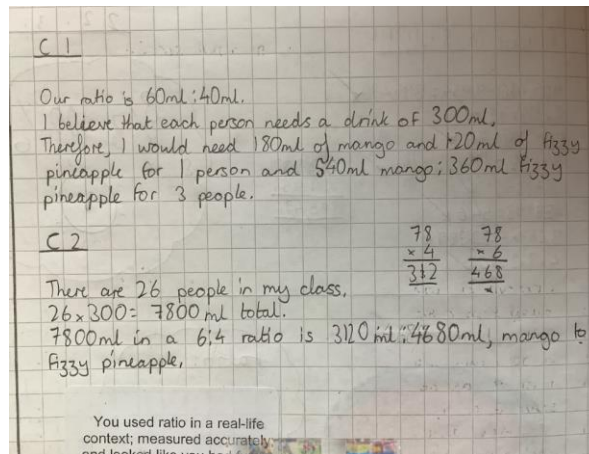 C 1
Our ratio is 60ml : 40ml.
I believe that each person needs a drink of 300ml.
Therefore, I would need 180ml of mango and 120ml of fizzy
pineapple for 1 person and 540ml mango : 360ml fizzy
pineapple for 3 people.
C 2
78
× 4
312
78
× 6
468
There are 26 people in my class.
26 × 300 = 7800 ml total.
7800ml in a 6:4 ratio is 3120 ml : 4680ml, mango to
fizzy pineapple.
You used ratio in a real-life
context; measured accurately
and looked like you had